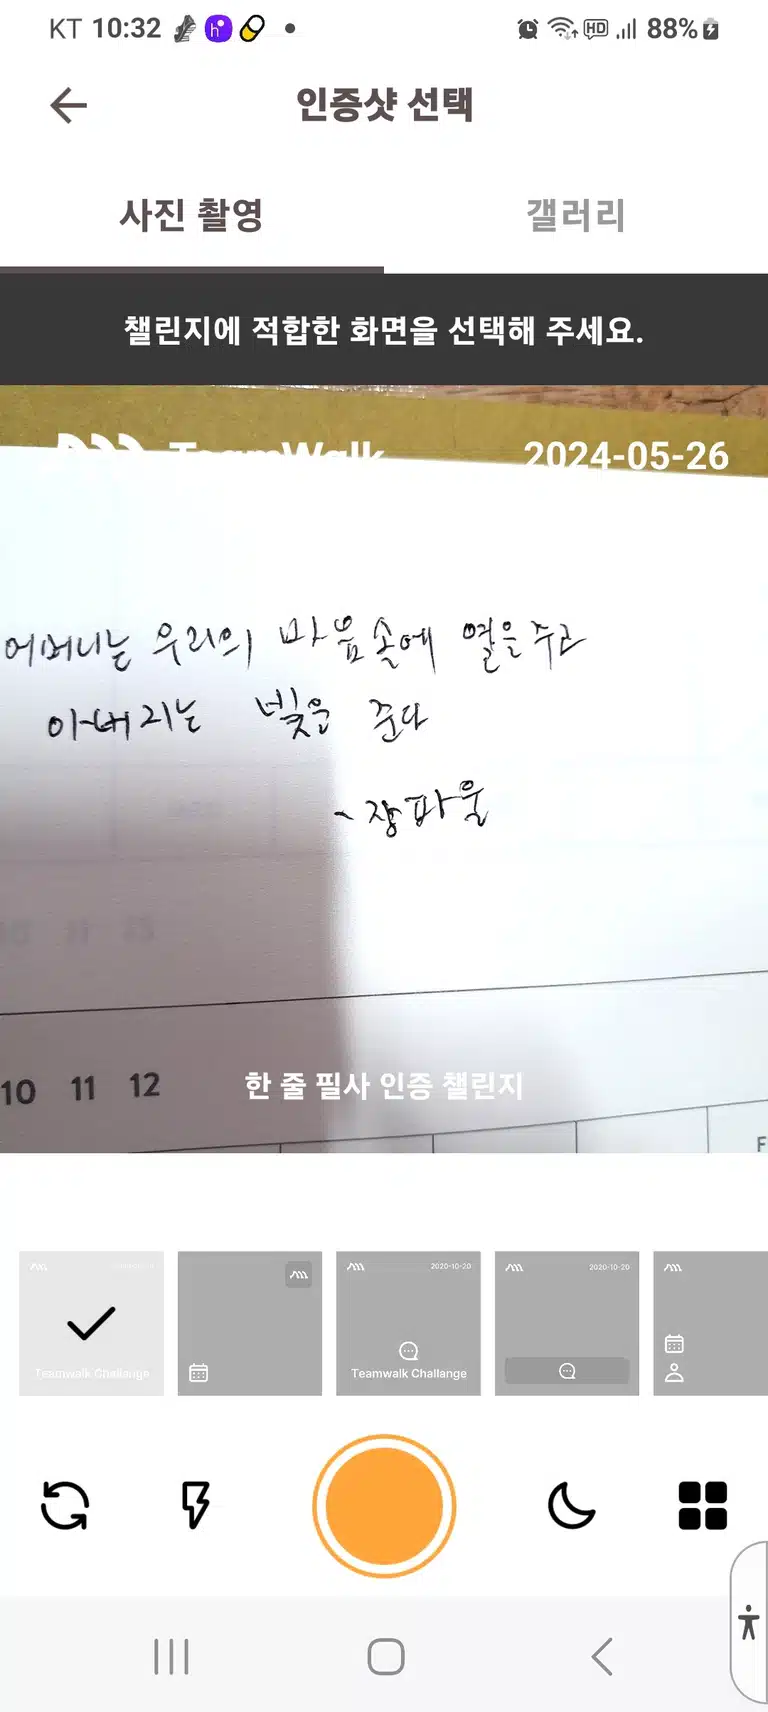 KT 10:32 HD 88%
인증샷 선택
사진 촬영 갤러리
챌린지에 적합한 화면을 선택해 주세요.
TeamWalk 2024-05-26
어머니는 우리의 마음속에 열을 주고
아버지는 빛을 준다
- 장파울
10 11 12
한 줄 필사 인증 챌린지
F
2020-10-20 2020-10-20
Teamwalk Challange Teamwalk Challange